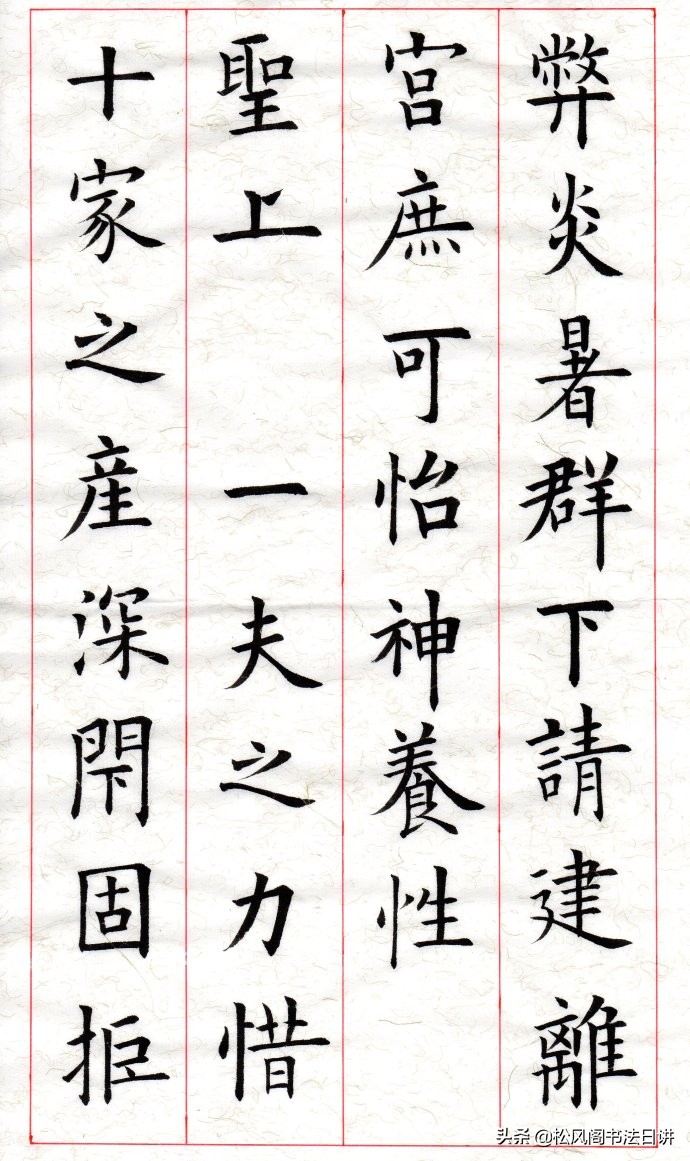 弊炎暑群下請建離
宫庶可怡神養性
聖上 一夫之力惜
十家之産深閇固拒
头条 @松风阁书法日讲